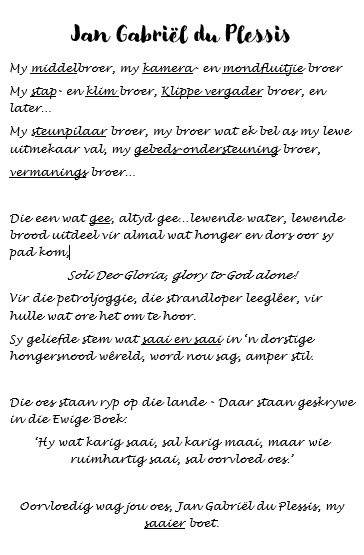 Jan Gabriël du Plessis
My middelbroer, my kamera- en mondfluitjie broer
My stap- en klim broer, Klippe vergader broer, en
later...
My steunpilaar broer, my broer wat ek bel as my lewe
uitmekaar val, my gebeds-ondersteuning broer,
vermanings broer...
Die een wat gee, altyd gee...lewende water, lewende
brood uitdeel vir almal wat honger en dors oor sy
pad kom,
Soli Deo Gloria, glory to God alone!
Vir die petroljoggie, die strandloper leeglêer, vir
hulle wat ore het om te hoor.
Sy geliefde stem wat saai en saai in 'n dorstige
hongersnood wêreld, word nou sag, amper stil.
Die oes staan ryp op die lande - Daar staan geskrywe
in die Ewige Boek:
'Hy wat karig saai, sal karig maai, maar wie
ruimhartig saai, sal oorvloed oes.'
Oorvloedig wag jou oes, Jan Gabriël du Plessis, my
saaier boet.